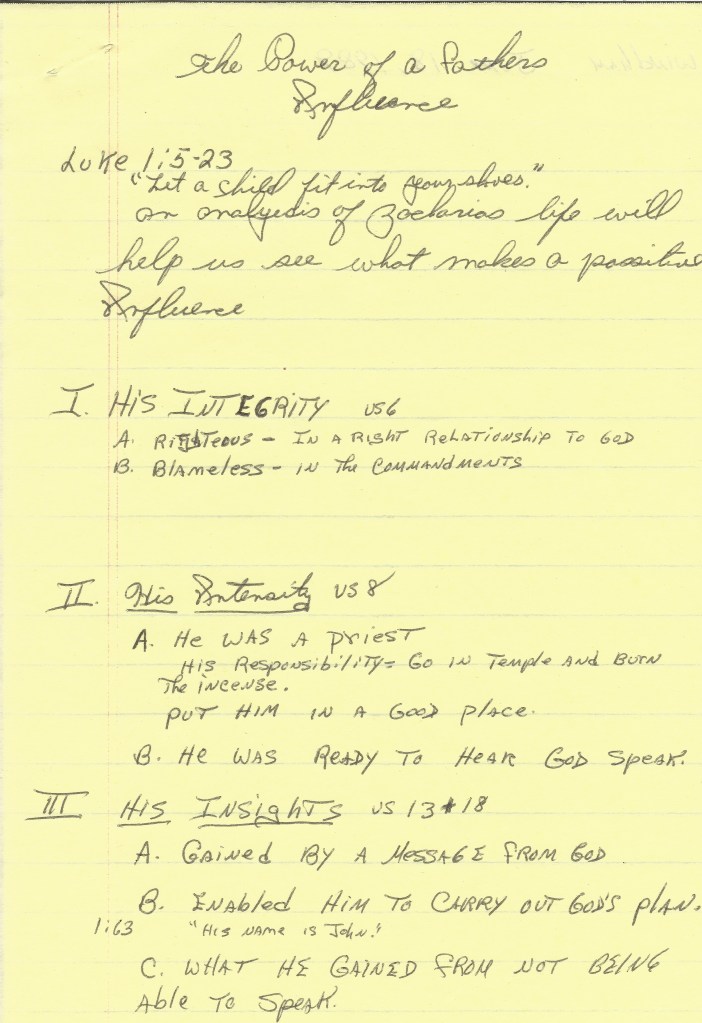 The Power of a Fathers
Influence
Luke 1:5-23
"Let a child fit into your shoes."
an analysis of Zacharias life will
help us see what makes a possitive
Influence
I. His INTEGRITY vs 6
A. RIGHTEOUS - IN A RIGHT RELATIONSHIP TO GOD
B. BLAMELESS - IN THE COMMANDMENTS
II. His Intensity vs 8
A. He WAS A PRIEST
His Responsibility = Go IN Temple AND BURN
The incense.
PUT HIM IN A GOOD PLACE.
B. He WAS READY TO HEAR GOD SPEAK.
III His INSIGHTS vs 13 + 18
A. GAINED BY A MESSAGE FROM GOD
B. ENABLED HIM TO CARRY OUT GOD'S PLAN.
1:63 "His NAME is JOHN."
C. WHAT HE GAINED FROM NOT BEING
Able To SPEAK.